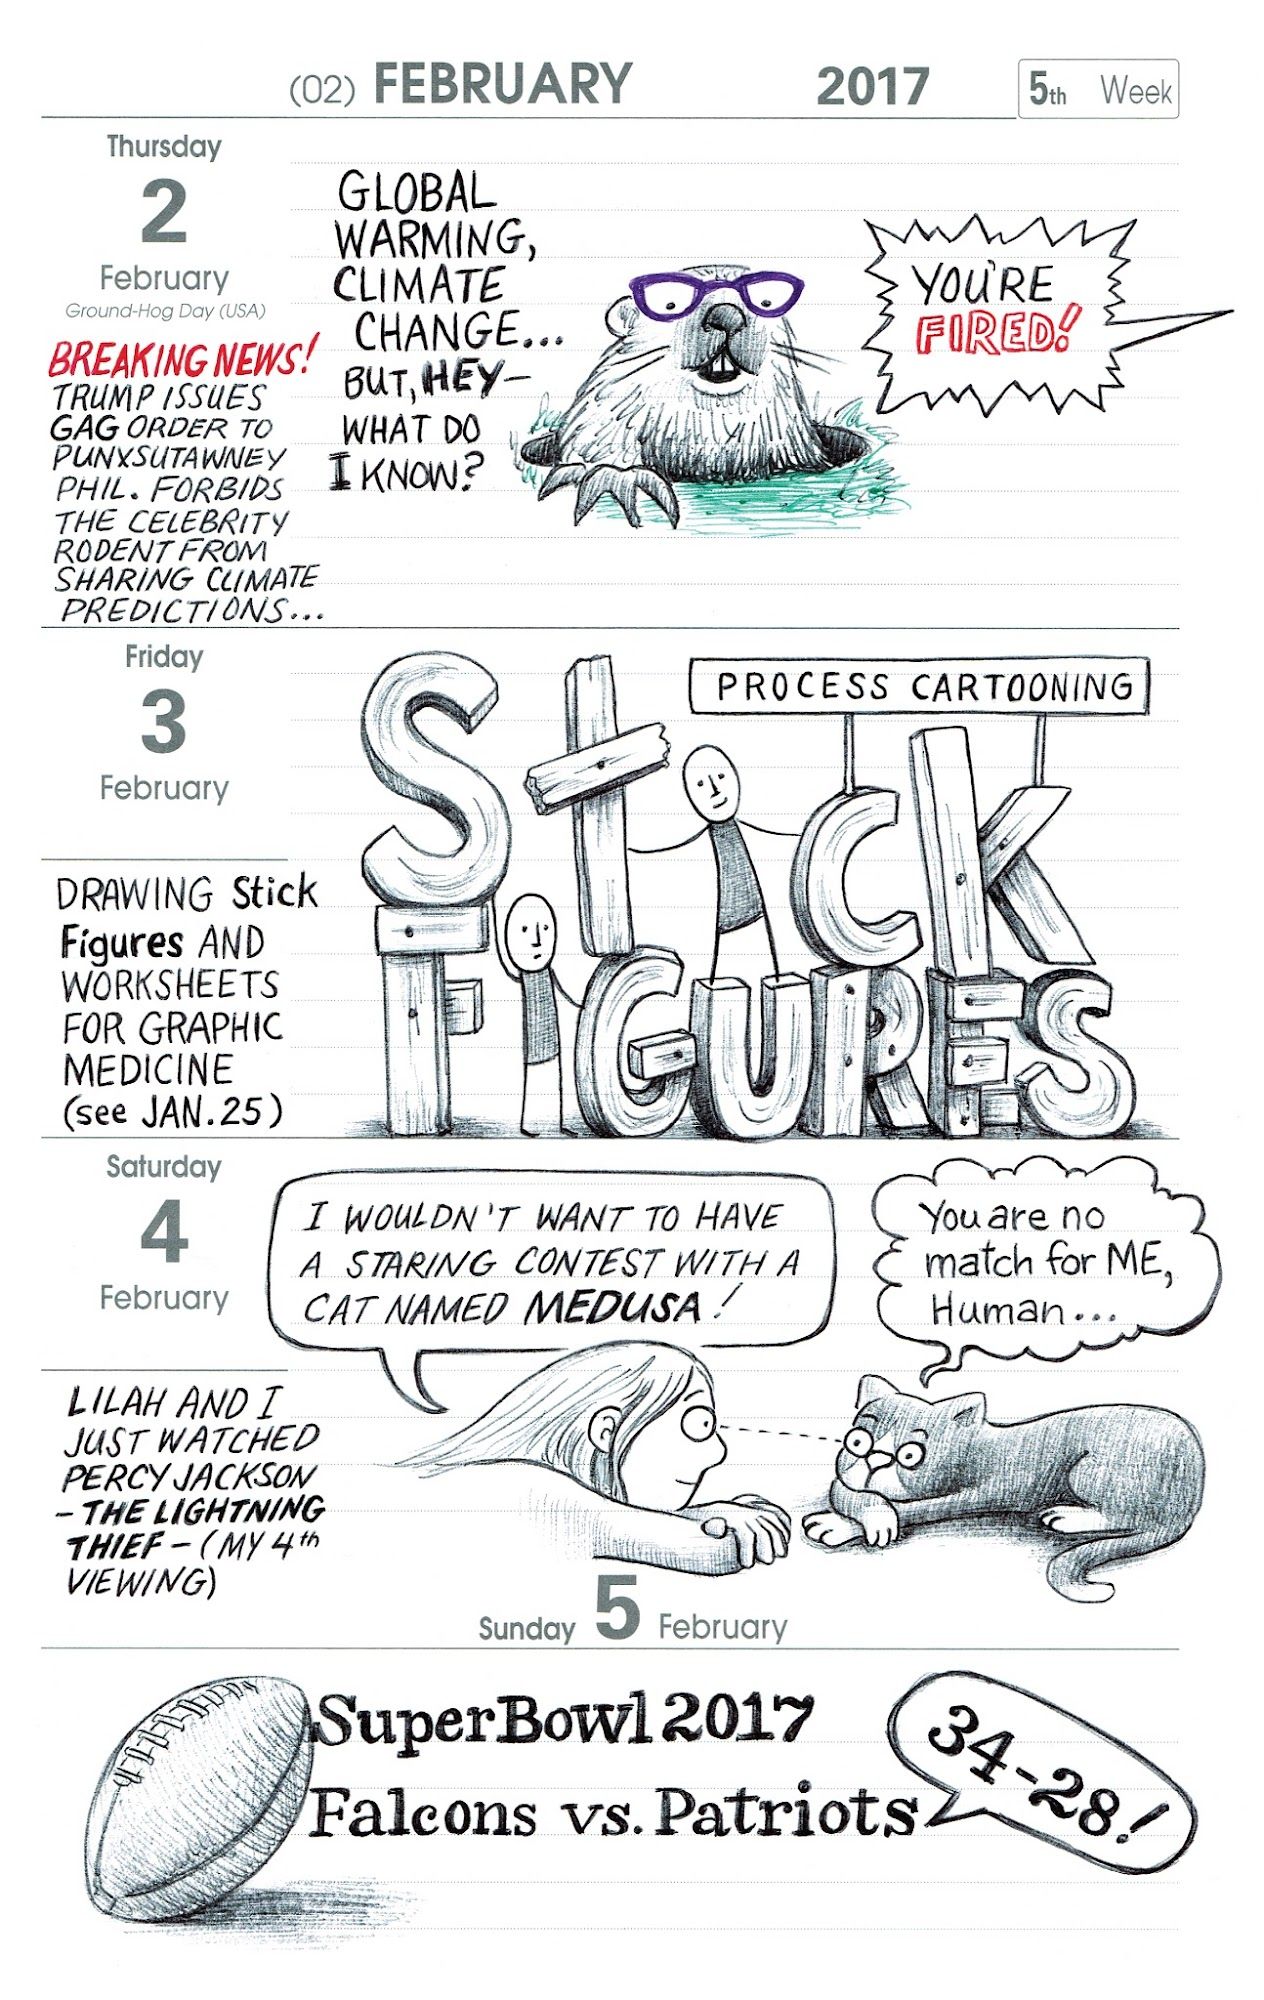 (02) FEBRUARY 2017 5th Week
Thursday
2
February
Ground-Hog Day (USA)
BREAKING NEWS!
TRUMP ISSUES
GAG ORDER TO
PUNXSUTAWNEY
PHIL. FORBIDS
THE CELEBRITY
RODENT FROM
SHARING CLIMATE
PREDICTIONS...
GLOBAL
WARMING,
CLIMATE
CHANGE...
BUT, HEY—
WHAT DO
I KNOW?
YOU'RE
FIRED!
Friday
3
February
DRAWING Stick
Figures AND
WORKSHEETS
FOR GRAPHIC
MEDICINE
(see JAN.25)
PROCESS CARTOONING
StiCK
FIGURES
Saturday
4
February
LILAH AND I
JUST WATCHED
PERCY JACKSON
- THE LIGHTNING
THIEF - (MY 4th
VIEWING)
I WOULDN'T WANT TO HAVE
A STARING CONTEST WITH A
CAT NAMED MEDUSA!
You are no
match for ME,
Human...
Sunday 5 February
SuperBowl 2017
Falcons vs. Patriots
34-28!